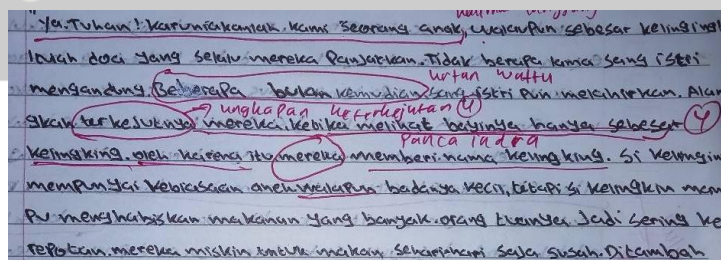 "Ya.Tuhan! karuniakanlah kami seorang anak, walaupun sebesar kelingking
Inilah doa yang selalu mereka panjatkan. Tidak berapa lama sang istri
urutan waktu
mengandung. Beberapa bulan kemudian sang istri pun melahirkan. Alan
ungkapan keterkejutan (4)
gkah terkejutnya mereka ketika melihat bayinya hanya sebesar (4)
Panca indra
kelingking. oleh karena itu mereka memberi nama kelingking. Si kelingin
mempunyai kebiasaan aneh walapun badanya kecil, tetapi si kelingkin mam
pu menghabiskan makanan yang banyak. orang tuanya Jadi sering ke
repotan. mereka miskin untuk makan seharihari saja susah. Ditambah